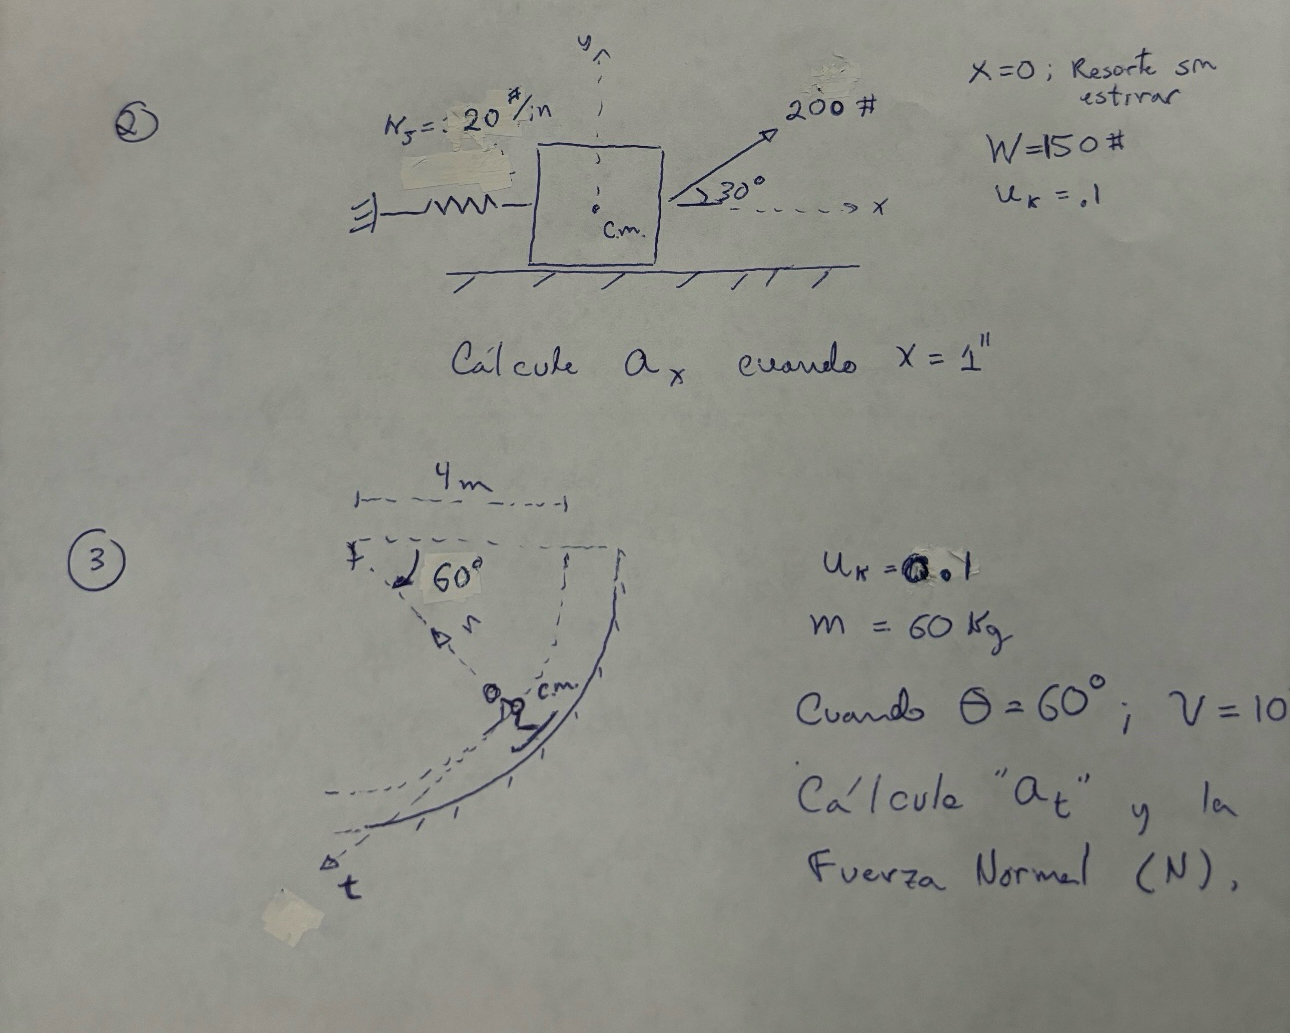 2
y
Ks = 20 #/in
200 #
30°
x
c.m.
x=0; Resorte sin
estirar
W=150#
uk = .1
Cálcule ax cuando x = 1"
3
4m
60°
n
c.m.
t
uk = 0.1
m = 60 Kg
Cuando θ = 60°; V = 10
Cálcule "at" y la
Fuerza Normal (N).